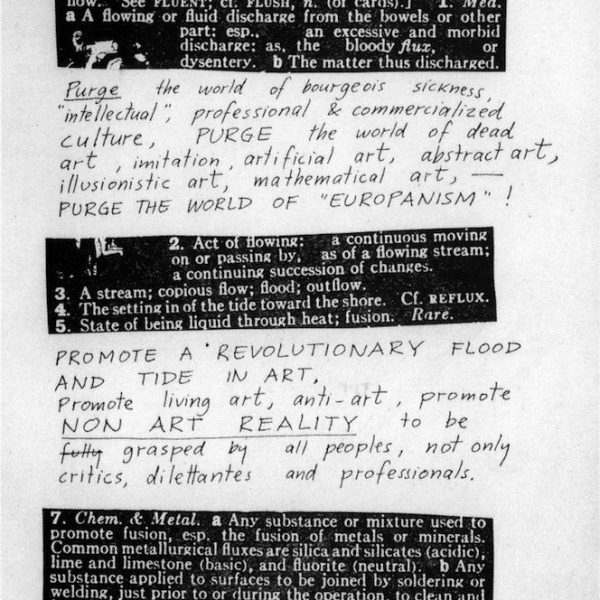 flow. See FLUENT; cf. FLUSH, n. (of cards).] 1. Med.
a A flowing or fluid discharge from the bowels or other
part: esp., an excessive and morbid
discharge: as, the bloody flux, or
dysentery. b The matter thus discharged.
Purge the world of bourgeois sickness,
"intellectual", professional & commercialized
culture, PURGE the world of dead
art, imitation, artificial art, abstract art,
illusionistic art, mathematical art, —
PURGE THE WORLD OF "EUROPANISM" !
2. Act of flowing: a continuous moving
on or passing by, as of a flowing stream;
a continuing succession of changes.
3. A stream; copious flow; flood; outflow.
4. The setting in of the tide toward the shore. Cf. REFLUX.
5. State of being liquid through heat; fusion. Rare.
PROMOTE A REVOLUTIONARY FLOOD
AND TIDE IN ART,
Promote living art, anti-art, promote
NON ART REALITY to be
fully grasped by all peoples, not only
critics, dilettantes and professionals.
7. Chem. & Metal. a Any substance or mixture used to
promote fusion, esp. the fusion of metals or minerals.
Common metallurgical fluxes are silica and silicates (acidic),
lime and limestone (basic), and fluorite (neutral). b Any
substance applied to surfaces to be joined by soldering or
welding, just prior to or during the operation, to clean and